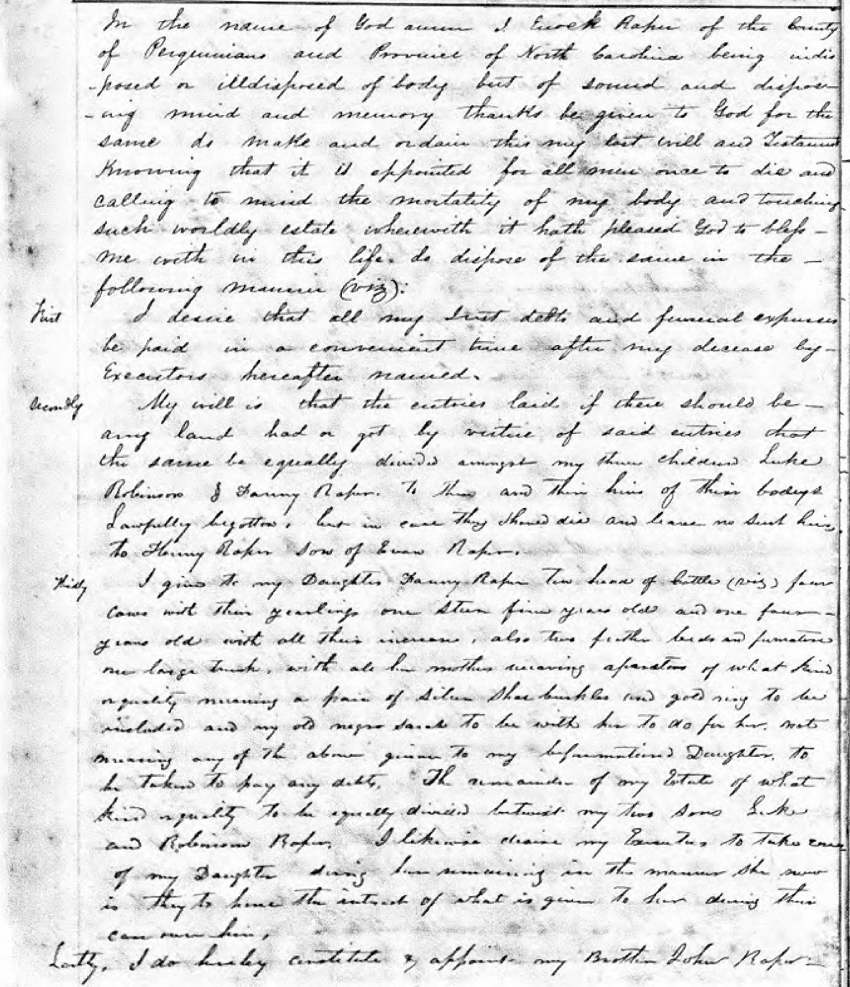 In the name of God amen I Enock Raper of the County
of Perquimans and Province of North Carolina being indis
-posed or illdisposed of body but of sound and dispos-
-ing mind and memory thanks be given to God for the
same do make and ordain this my last will and Testament
Knowing that it is appointed for all men once to die and
calling to mind the mortality of my body and touching
such worldly estate wherewith it hath pleased God to bless -
me with in this life do dispose of the same in the -
following manner (viz):
First I desire that all my Just debts and funeral expenses
be paid in a convenient time after my decease by-
Executors hereafter named.
Secondly My will is that the entries laid if there should be -
any land had or got by virtue of said entries that
the same be equally divided amongst my three children Luke
Robinson & Fanny Raper. To them and their heirs of their bodeys
Lawfully begotten, but in case they should die and leave no such heirs,
to Henry Raper son of Evan Raper.
Thirdly I give to my Daughter Fanny Raper Ten head of Cattle (viz) four
cows with their yearlings one steer five years old and one four-
years old with all their increase, also two feather beds and furniture
one large trunk, with all her mothers wearing aparatus of what kind
or quality meaning a pair of silver shoe buckles and gold ring to be
included and my old negro Sarah to be with her to do for her. not
meaning any of the above given to my beforementioned Daughter, to
be taken to pay any debts. The remainder of my Estate of what
kind or quality to be equally divided betwixt my two sons Luke
and Robinson Raper. I likewise desire my Executors to take care
of my Daughter during her remaining in the manner she now
is they to have the interest of what is given to her during their
care over her.
Lastly, I do hereby constitute & appoint my Brother John Raper -